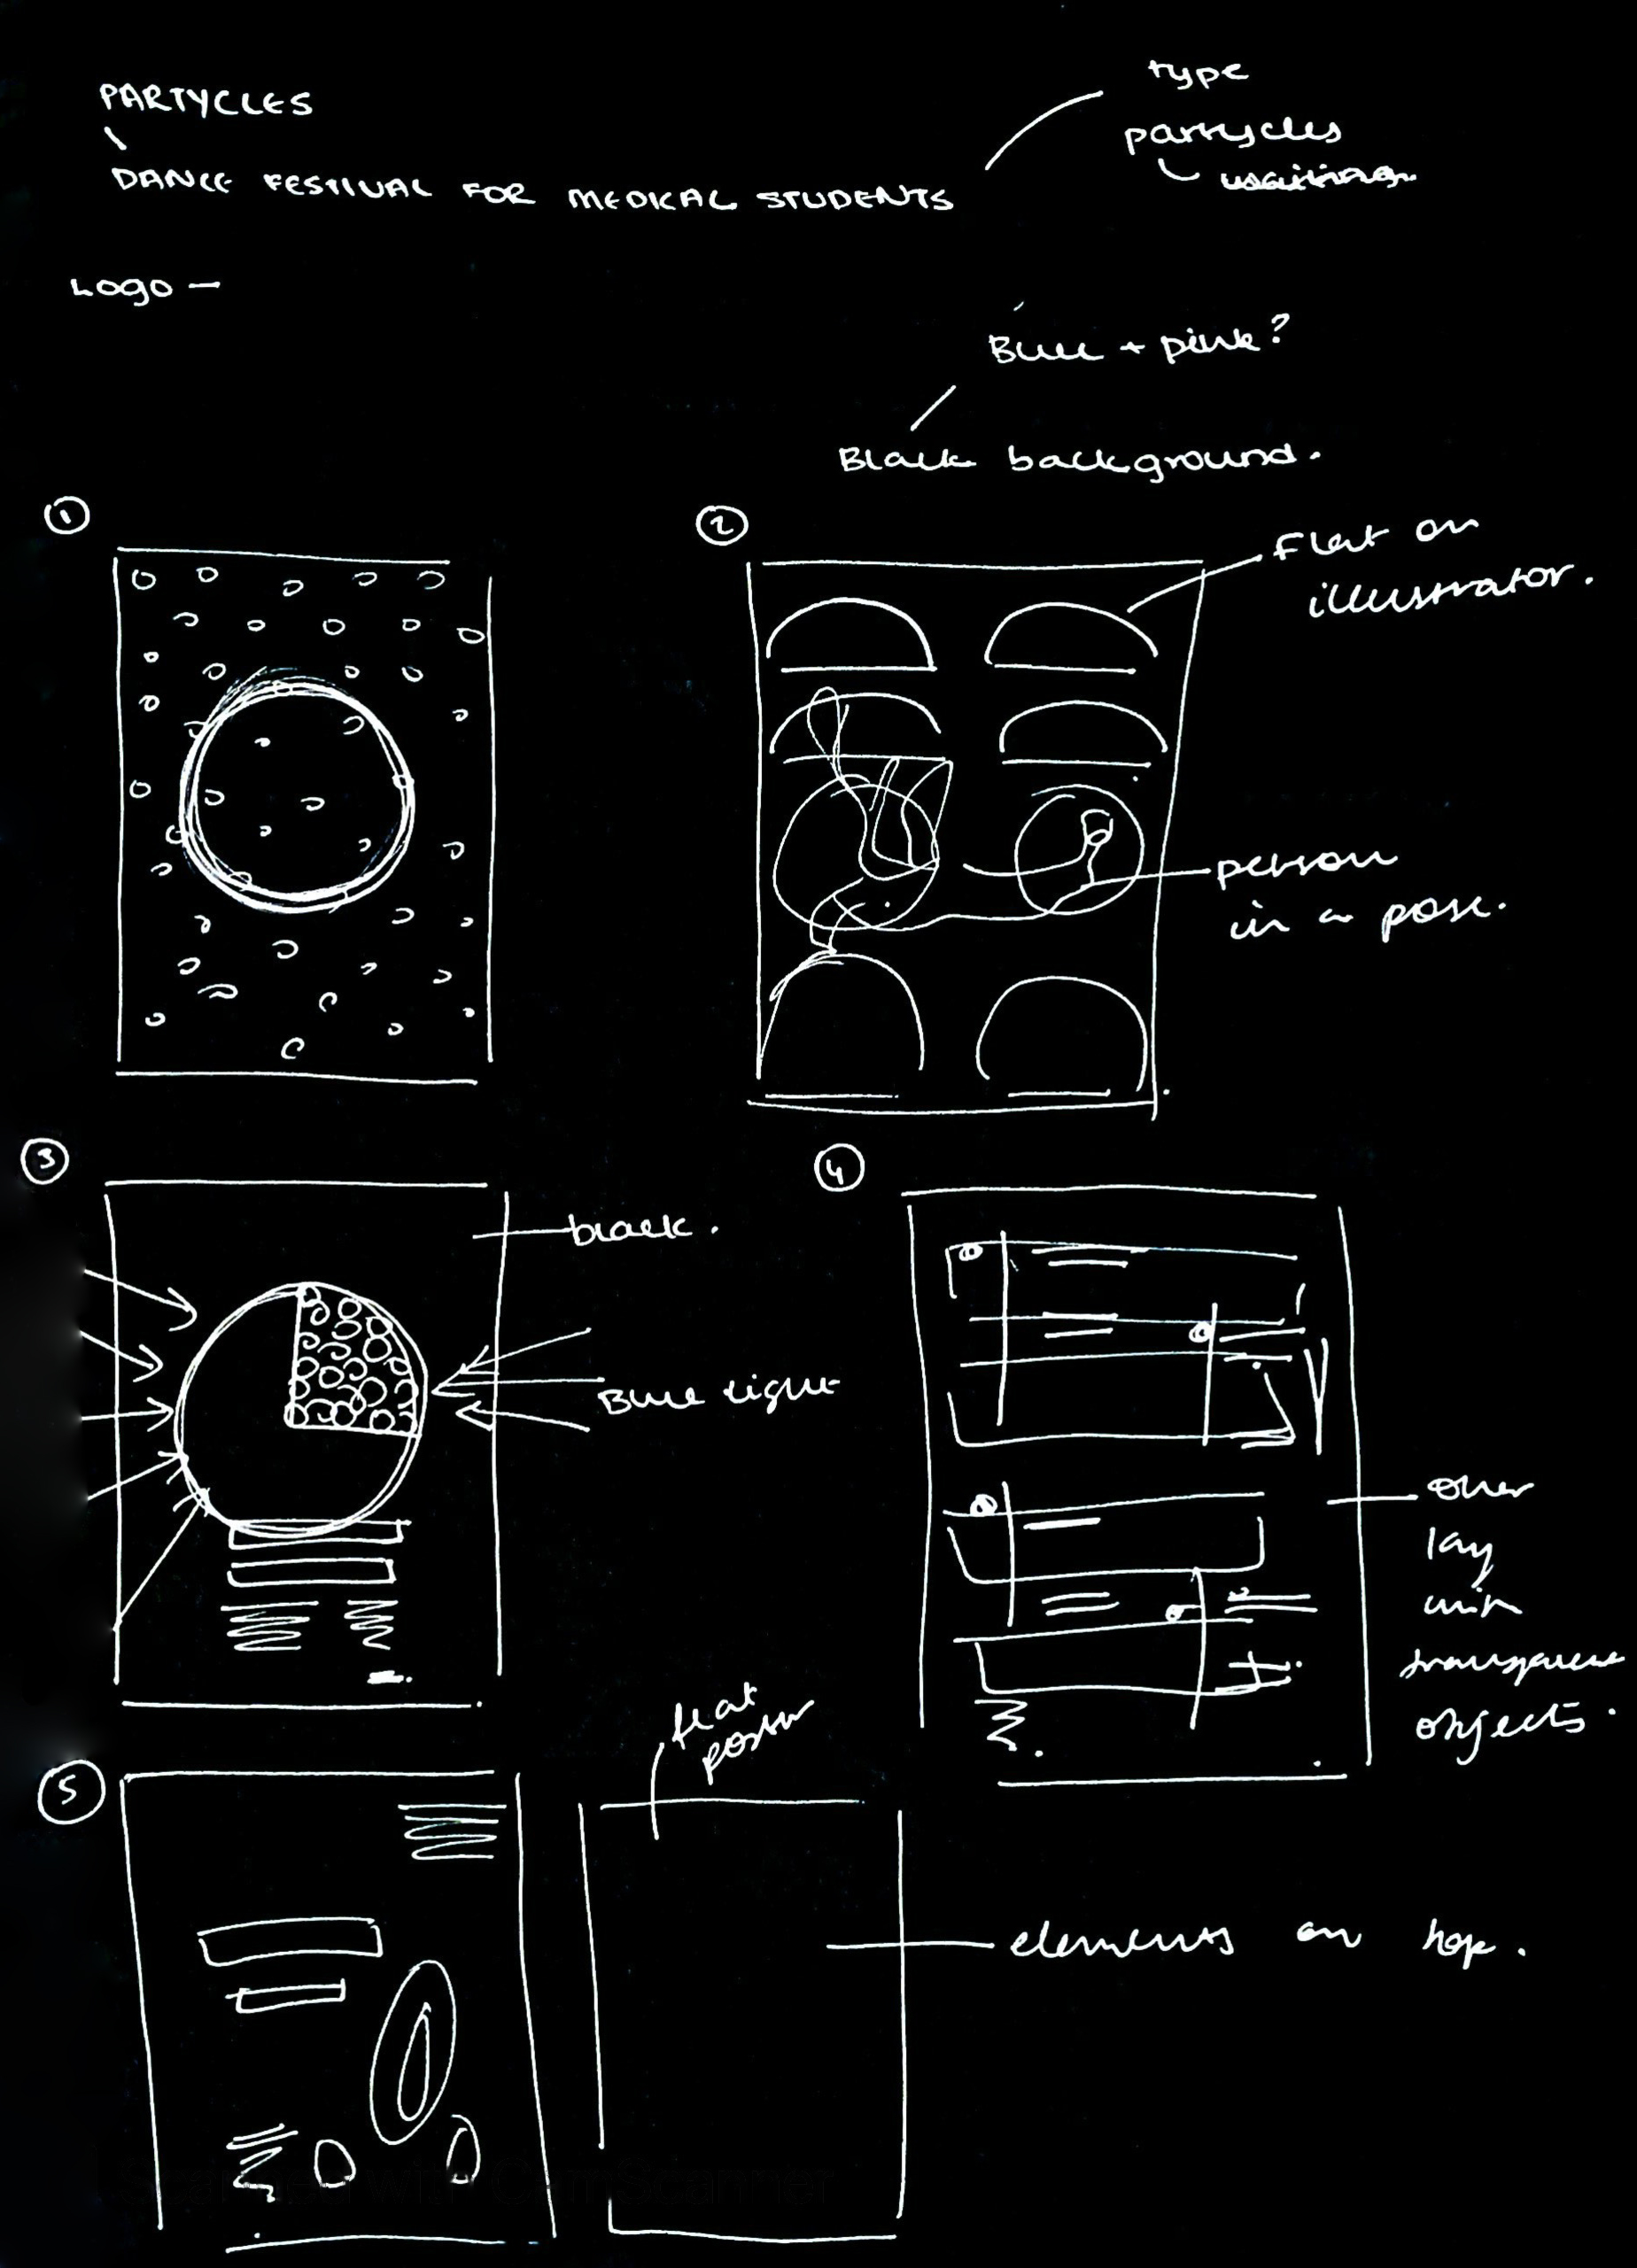 PARTYCLES
DANCE FESTIVAL FOR MEDICAL STUDENTS
type
partycles
Logo –
Blue + pink?
Black background.
1
2
Flat on
illustrator.
person
in a pose.
3
black.
Blue light
4
over
lay
with
transparent
objects.
5
flat
poster
elements on top.